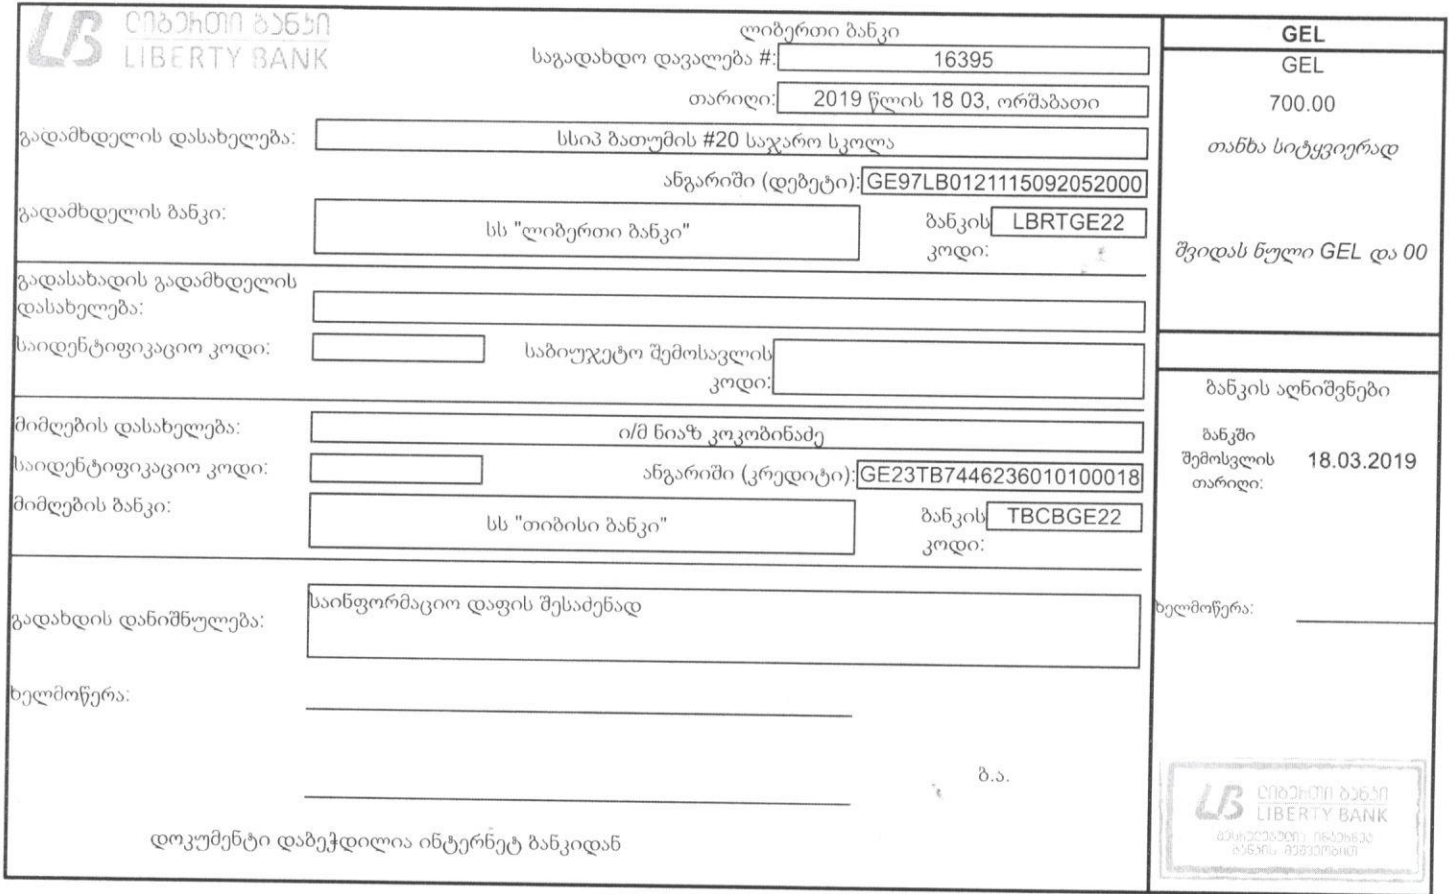 ლიბერთი ბანკი
LIBERTY BANK
ლიბერთი ბანკი
საგადახდო დავალება #: 16395
თარიღი: 2019 წლის 18 03, ორშაბათი
გადამხდელის დასახელება: სსიპ ბათუმის #20 საჯარო სკოლა
ანგარიში (დებეტი): GE97LB0121115092052000
გადამხდელის ბანკი: სს "ლიბერთი ბანკი" ბანკის LBRTGE22
კოდი:
გადასახადის გადამხდელის
დასახელება:
საიდენტიფიკაციო კოდი: საბიუჯეტო შემოსავლის
კოდი:
მიმღების დასახელება: ი/მ ნიაზ კოკობინაძე
საიდენტიფიკაციო კოდი: ანგარიში (კრედიტი): GE23TB7446236010100018
მიმღების ბანკი: სს "თიბისი ბანკი" ბანკის TBCBGE22
კოდი:
გადახდის დანიშნულება: საინფორმაციო დაფის შესაძენად
ხელმოწერა:
ბ.ა.
დოკუმენტი დაბეჭდილია ინტერნეტ ბანკიდან
GEL
GEL
700.00
თანხა სიტყვიერად
შვიდას ნული GEL და 00
ბანკის აღნიშვნები
ბანკში
შემოსვლის 18.03.2019
თარიღი:
ხელმოწერა:
ლიბერთი ბანკი
LIBERTY BANK
შესრულებულია ინტერნეტ
ბანკის მეშვეობით